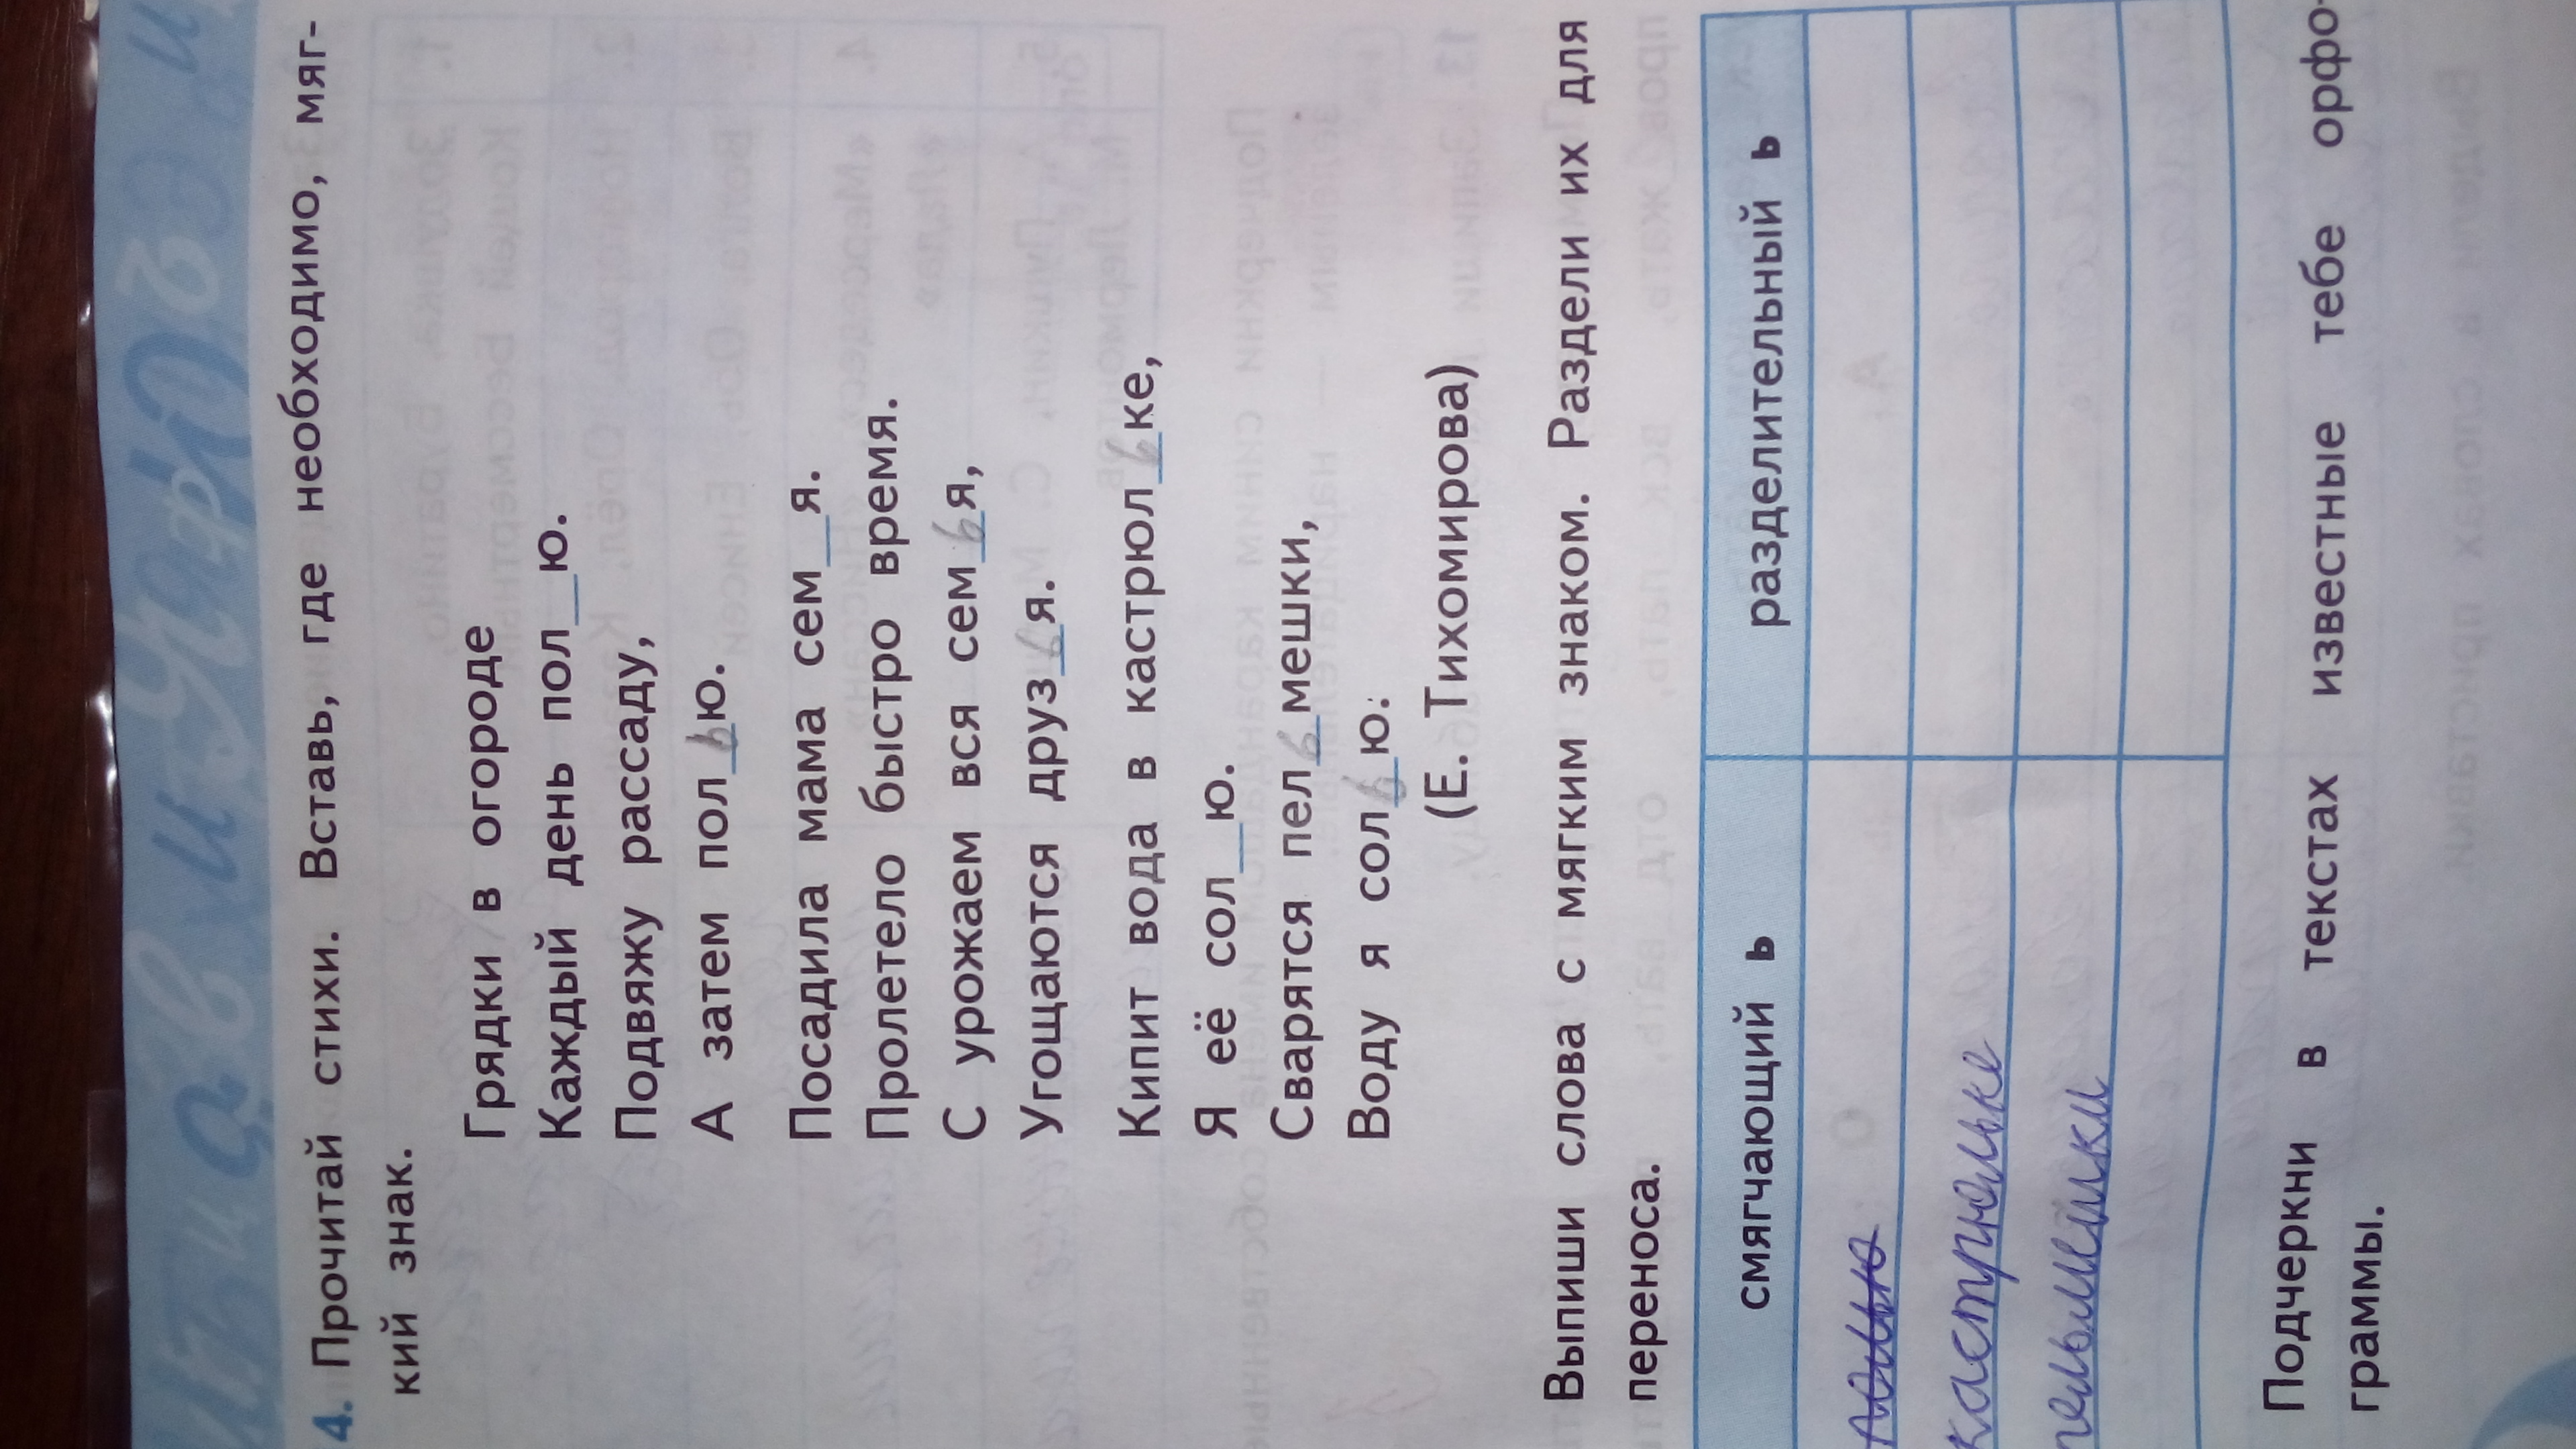 4. Прочитай стихи. Вставь, где необходимо, мяг-
кий знак.
Грядки в огороде
Каждый день пол_ю.
Подвяжу рассаду,
А затем пол_ью.
Посадила мама сем_я.
Пролетело быстро время.
С урожаем вся сем_ья,
Угощаются друз_ья.
Кипит вода в кастрюл_ьке,
Я её сол_ю.
Сварятся пел_ьмешки,
Воду я сол_ью.
(Е. Тихомирова)
Выпиши слова с мягким знаком. Раздели их для
переноса.
смягчающий ь разделительный ь
кастрюльке
пельмешки
Подчеркни в текстах известные тебе орфо-
граммы.